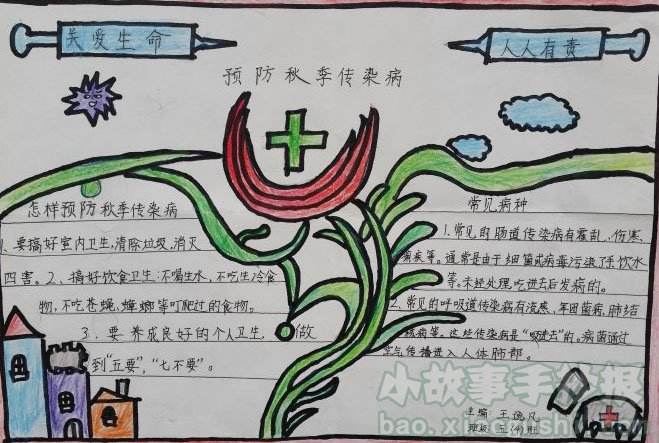 关爱生命
人人有责
预防秋季传染病
怎样预防秋季传染病
1、要搞好室内卫生,清除垃圾,消灭
四害。2、搞好饮食卫生:不喝生水,不吃生冷食
物,不吃苍蝇,蟑螂等叮爬过的食物。
3、要养成良好的个人卫生,做
到"五要","七不要"。
常见病种
1.常见的肠道传染病有霍乱、伤寒
等。通常是由于细菌或病毒污染了手饮水
等。未经处理,吃进去后发病的。
2、常见的呼吸道传染病有流感、军团菌病,肺结
核病等。这些传染病是"吸进去"的。病菌通过
空气传播进入人体肺部。
主编:王逸凡
班级:三(4)班
小故事手抄报